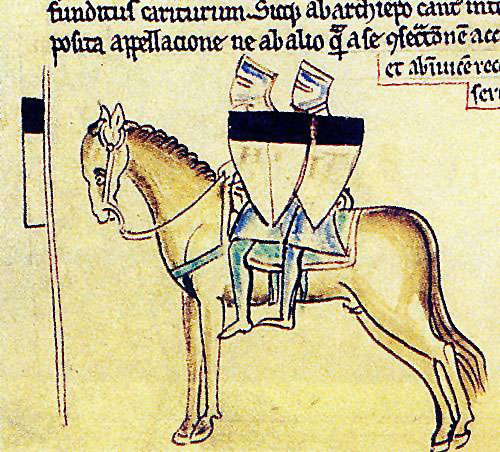 funditus cariturum. Sicq; ab archiep̄o cant int
posita appellacione ne ab alio q̄m a se ꝯsecc̄onē acc
et abīuicē rec
ser